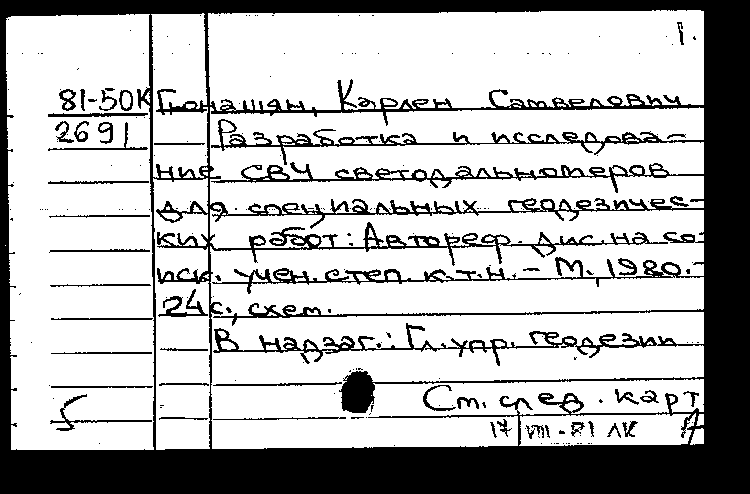 1.
81-50К Гюнашян, Карлен Самвелович.
2691 Разработка и исследова-
ние СВЧ светодальномеров
для специальных геодезичес-
ких работ: Автореф. дис. на со-
иск. учен. степ. к.т.н. - М., 1980. -
24 с., схем.
В надзаг.: Гл. упр. геодезии
См. след. карт
17/VIII-81 ЛК